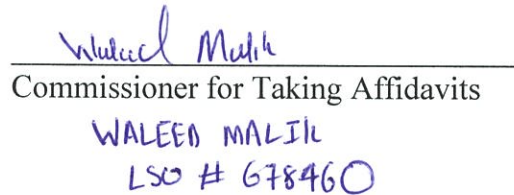 Waleed Malik
Commissioner for Taking Affidavits
WALEED MALIK
LSO # 67846O